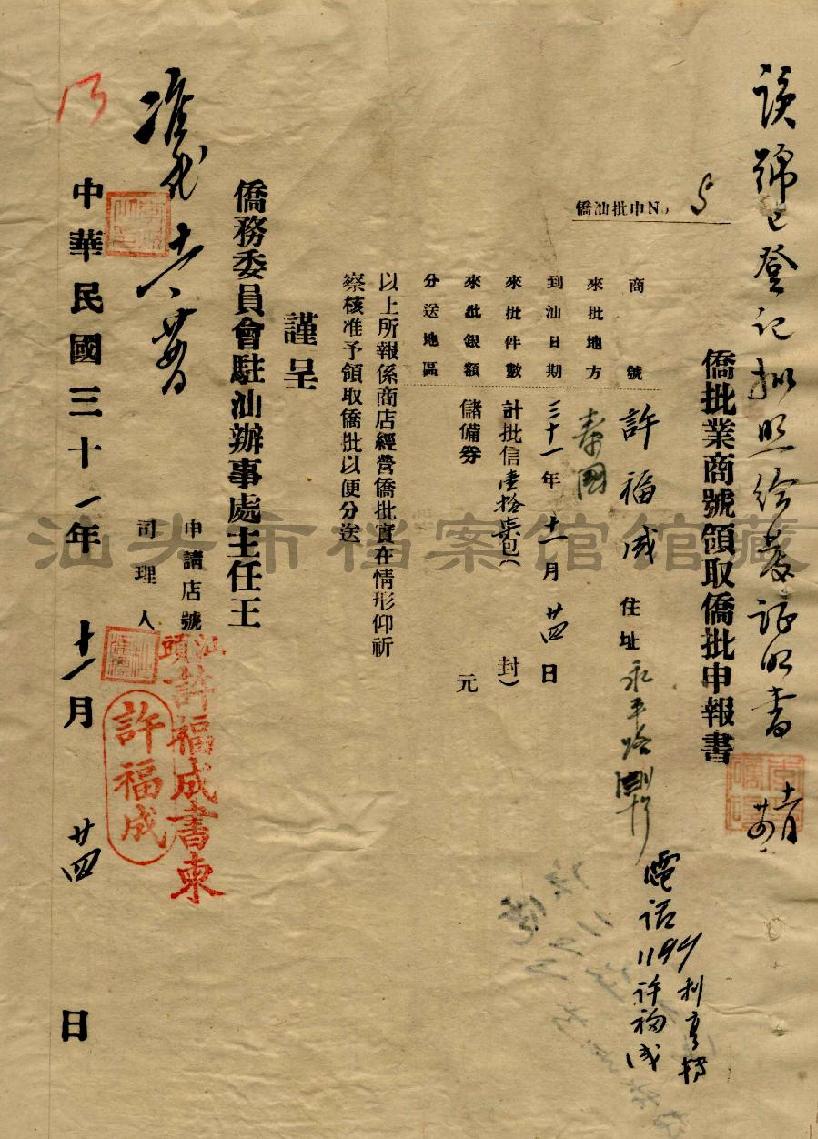 該號已登記擬照給發證明書
僑批業商號領取僑批申報書
僑汕批申No 5
商號 許福成 住址 永平路
電话1199 利亨转
许福成
來批地方 泰國
到汕日期 三十一年十一月廿四日
來批件數 計批信壹拾柒包( 封)
來批銀額 儲備券 元
分送地區
以上所報係商店經營僑批實在情形仰祈
察核准予領取僑批以便分送
謹呈
僑務委員會駐汕辦事處主任王
申請店號
汕頭許福成書柬
司理人
許福成
准
中華民國三十一年十一月廿四日
汕头市档案馆馆藏